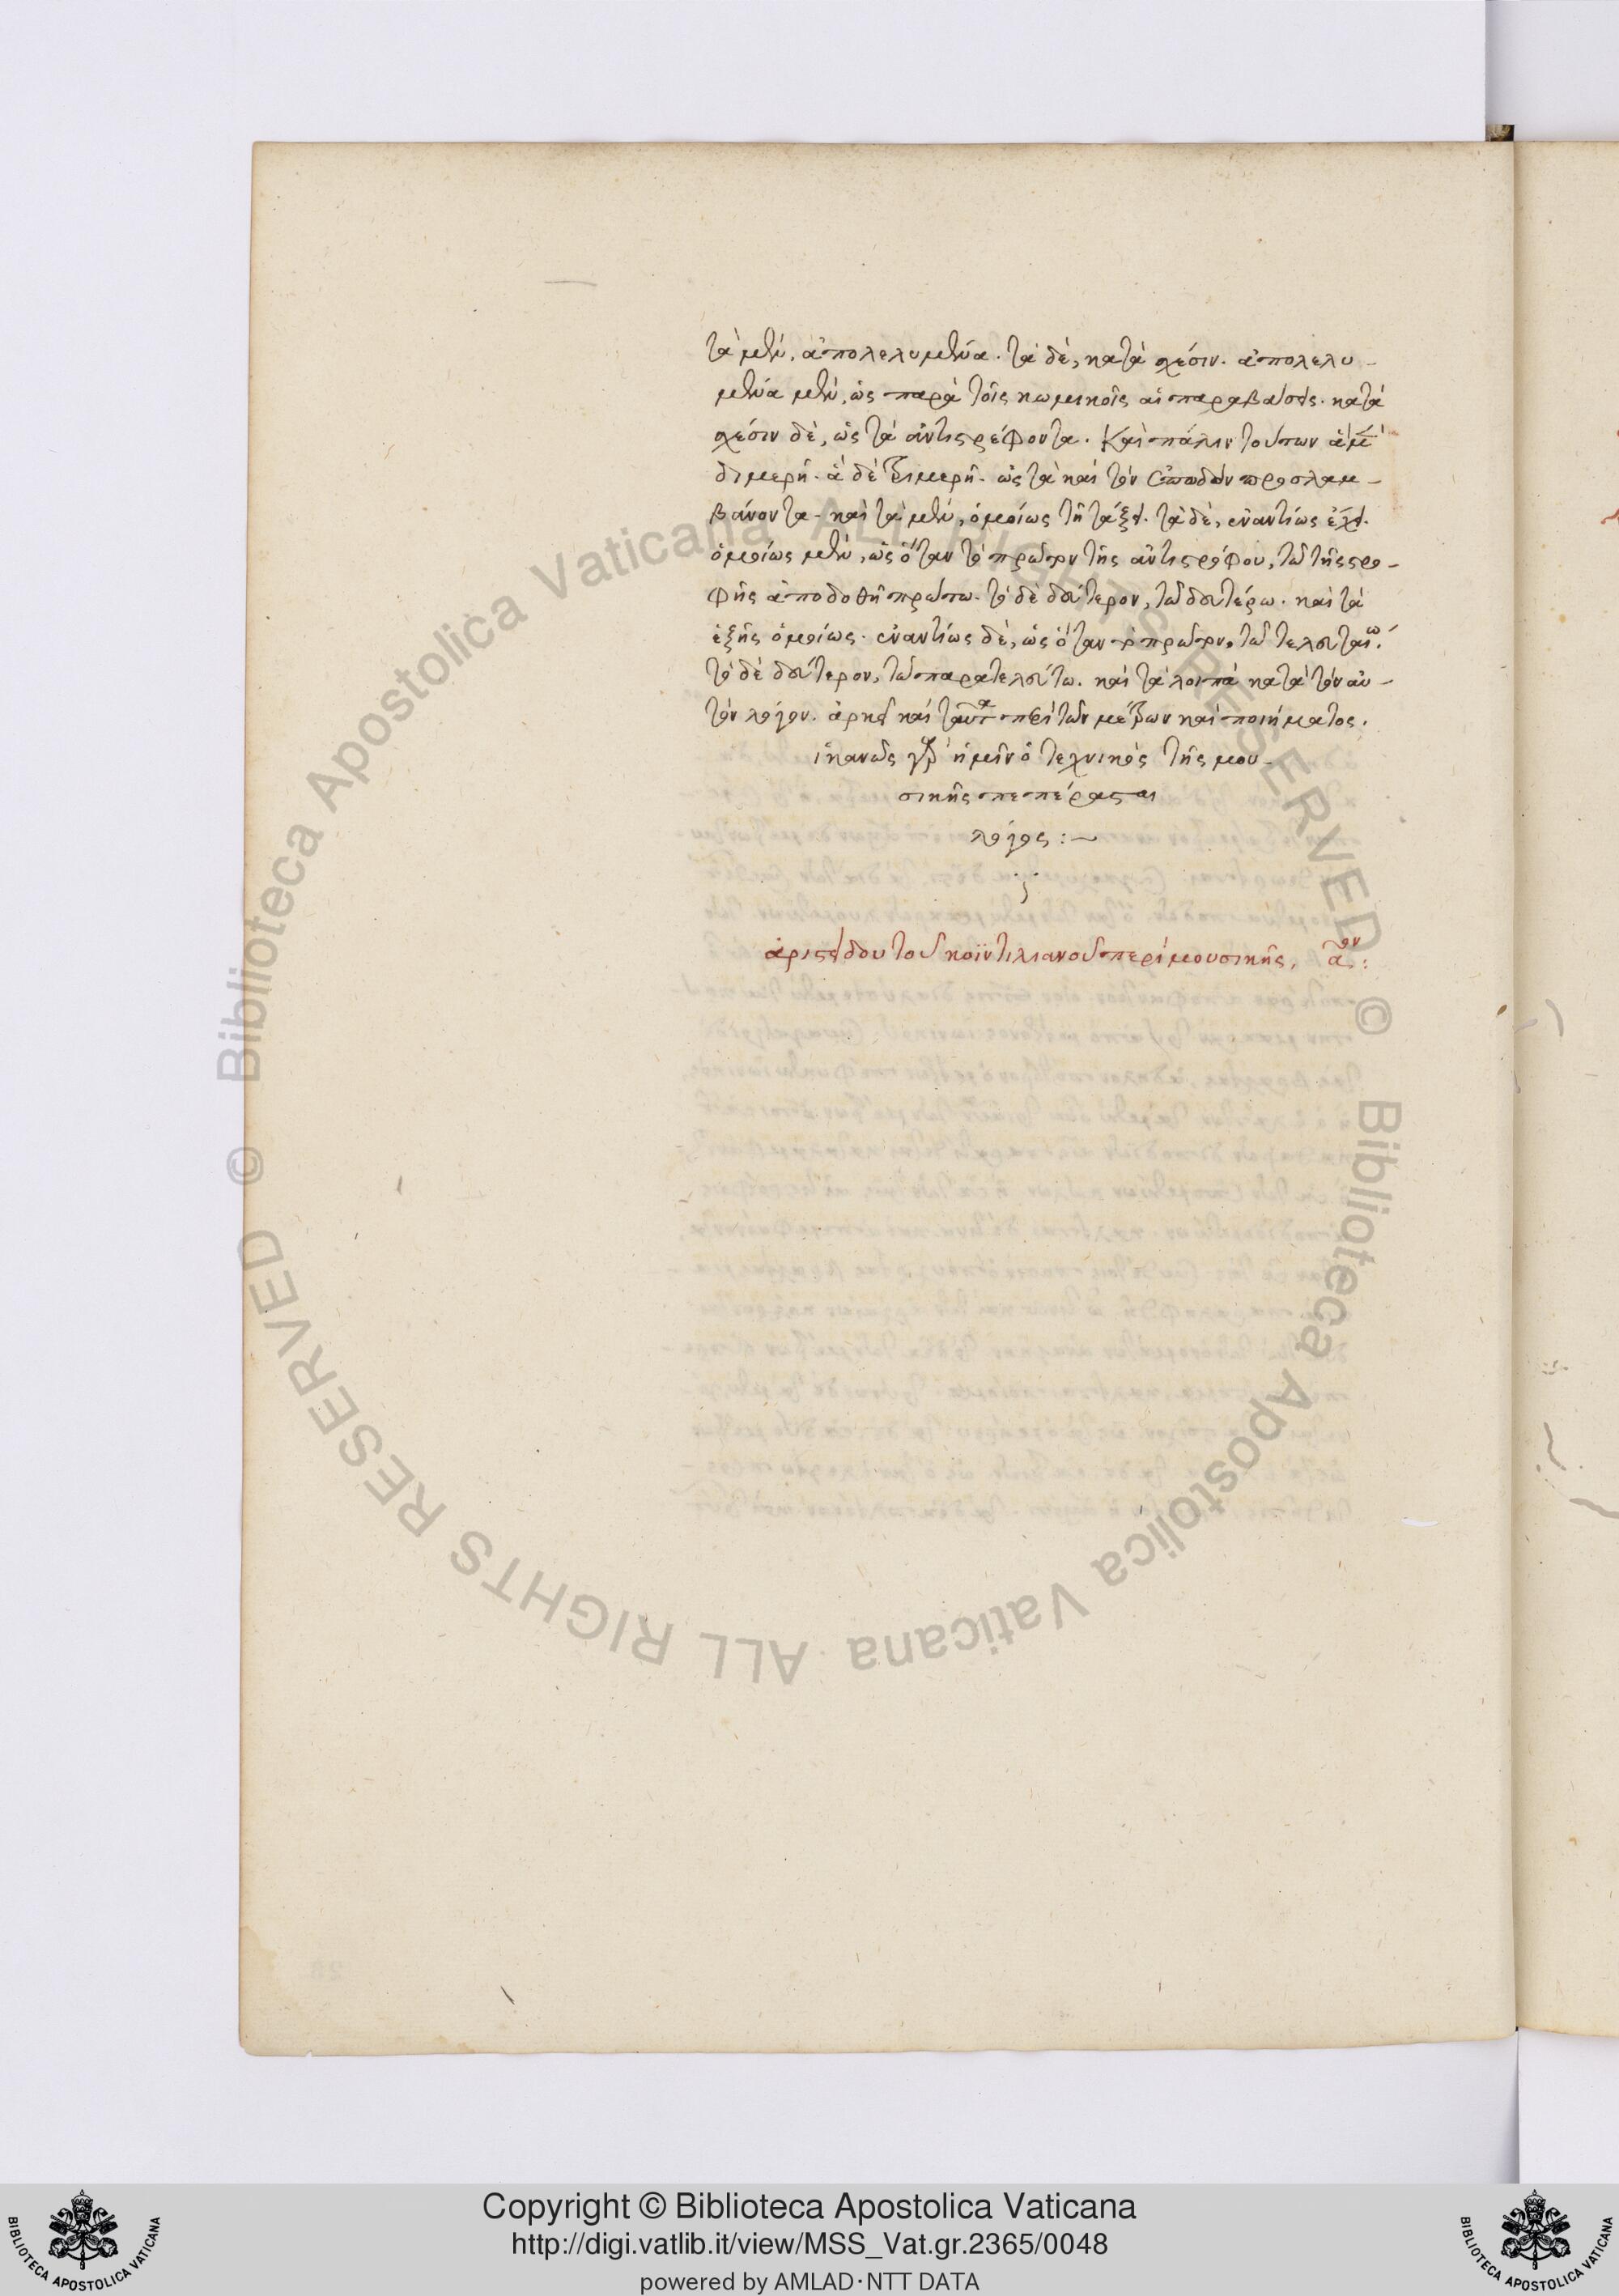 τὰ μὲν, ἀπολελυμένα. τὰ δὲ, κατὰ σχέσιν. ἀπολελυ-
μένα μὲν, ὡς παρὰ τοῖς κωμικοῖς αἱ παραβάσεις. κατὰ
σχέσιν δὲ, ὡς τὰ ἀντιστρέφοντα. καὶ πάλιν τούτων ἃ μ
διμερῆ. ἃ δὲ τριμερῆ. ὡς τὰ καὶ τὴν ἐπωδὸν προσλαμ-
βάνοντα. καὶ τὰ μὲν, ὁμοίως τῇ τάξει. τὰ δὲ, ἐναντίως ἔχει.
ὁμοίως μὲν, ὡς ὅταν τὸ πρῶτον τῆς ἀντιστρόφου, τῶ τῆς στρο-
φῆς ἀποδοθῆ πρώτω. τὸ δὲ δεύτερον, τῶ δευτέρω. καὶ τὰ
ἑξῆς ὁμοίως. ἐναντίως δὲ, ὡς ὅταν τὸ πρῶτον, τῶ τελευταίω.
τὸ δὲ δεύτερον, τῶ παρατελεύτω. καὶ τὰ λοιπὰ κατὰ τὸν αὐ-
τὸν λόγον. ἀρκεῖ καὶ ταῦτα περὶ τῶν μέτρων καὶ ποιήματος.
ἱκανῶς γὰρ ἡμῖν ὁ τεχνικὸς τῆς μου-
σικῆς πεπέρασται
λόγος :~
ἀριστείδου τοῦ κοϊντιλιανοῦ περὶ μουσικῆς, αον :
Copyright © Biblioteca Apostolica Vaticana
http://digi.vatlib.it/view/MSS_Vat.gr.2365/0048
powered by AMLAD·NTT DATA
BIBLIOTECA APOSTOLICA VATICANA
BIBLIOTECA APOSTOLICA VATICANA
© Biblioteca Apostolica Vaticana ALL RIGHTS RESERVED
© Biblioteca Apostolica Vaticana ALL RIGHTS RESERVED